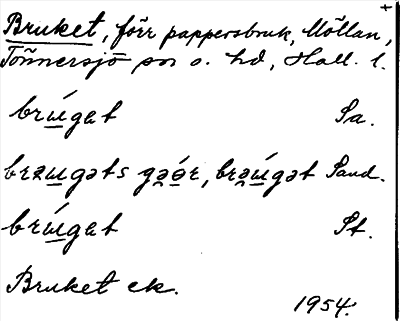 +
Bruket, förr pappersbruk, Möllan,
Tönnersjö sn o. hd, Hall. l.
brúgat Sa.
brəugəts gəǿr, brəúgət Sand.
brúgat St.
Bruket ek.
1954.